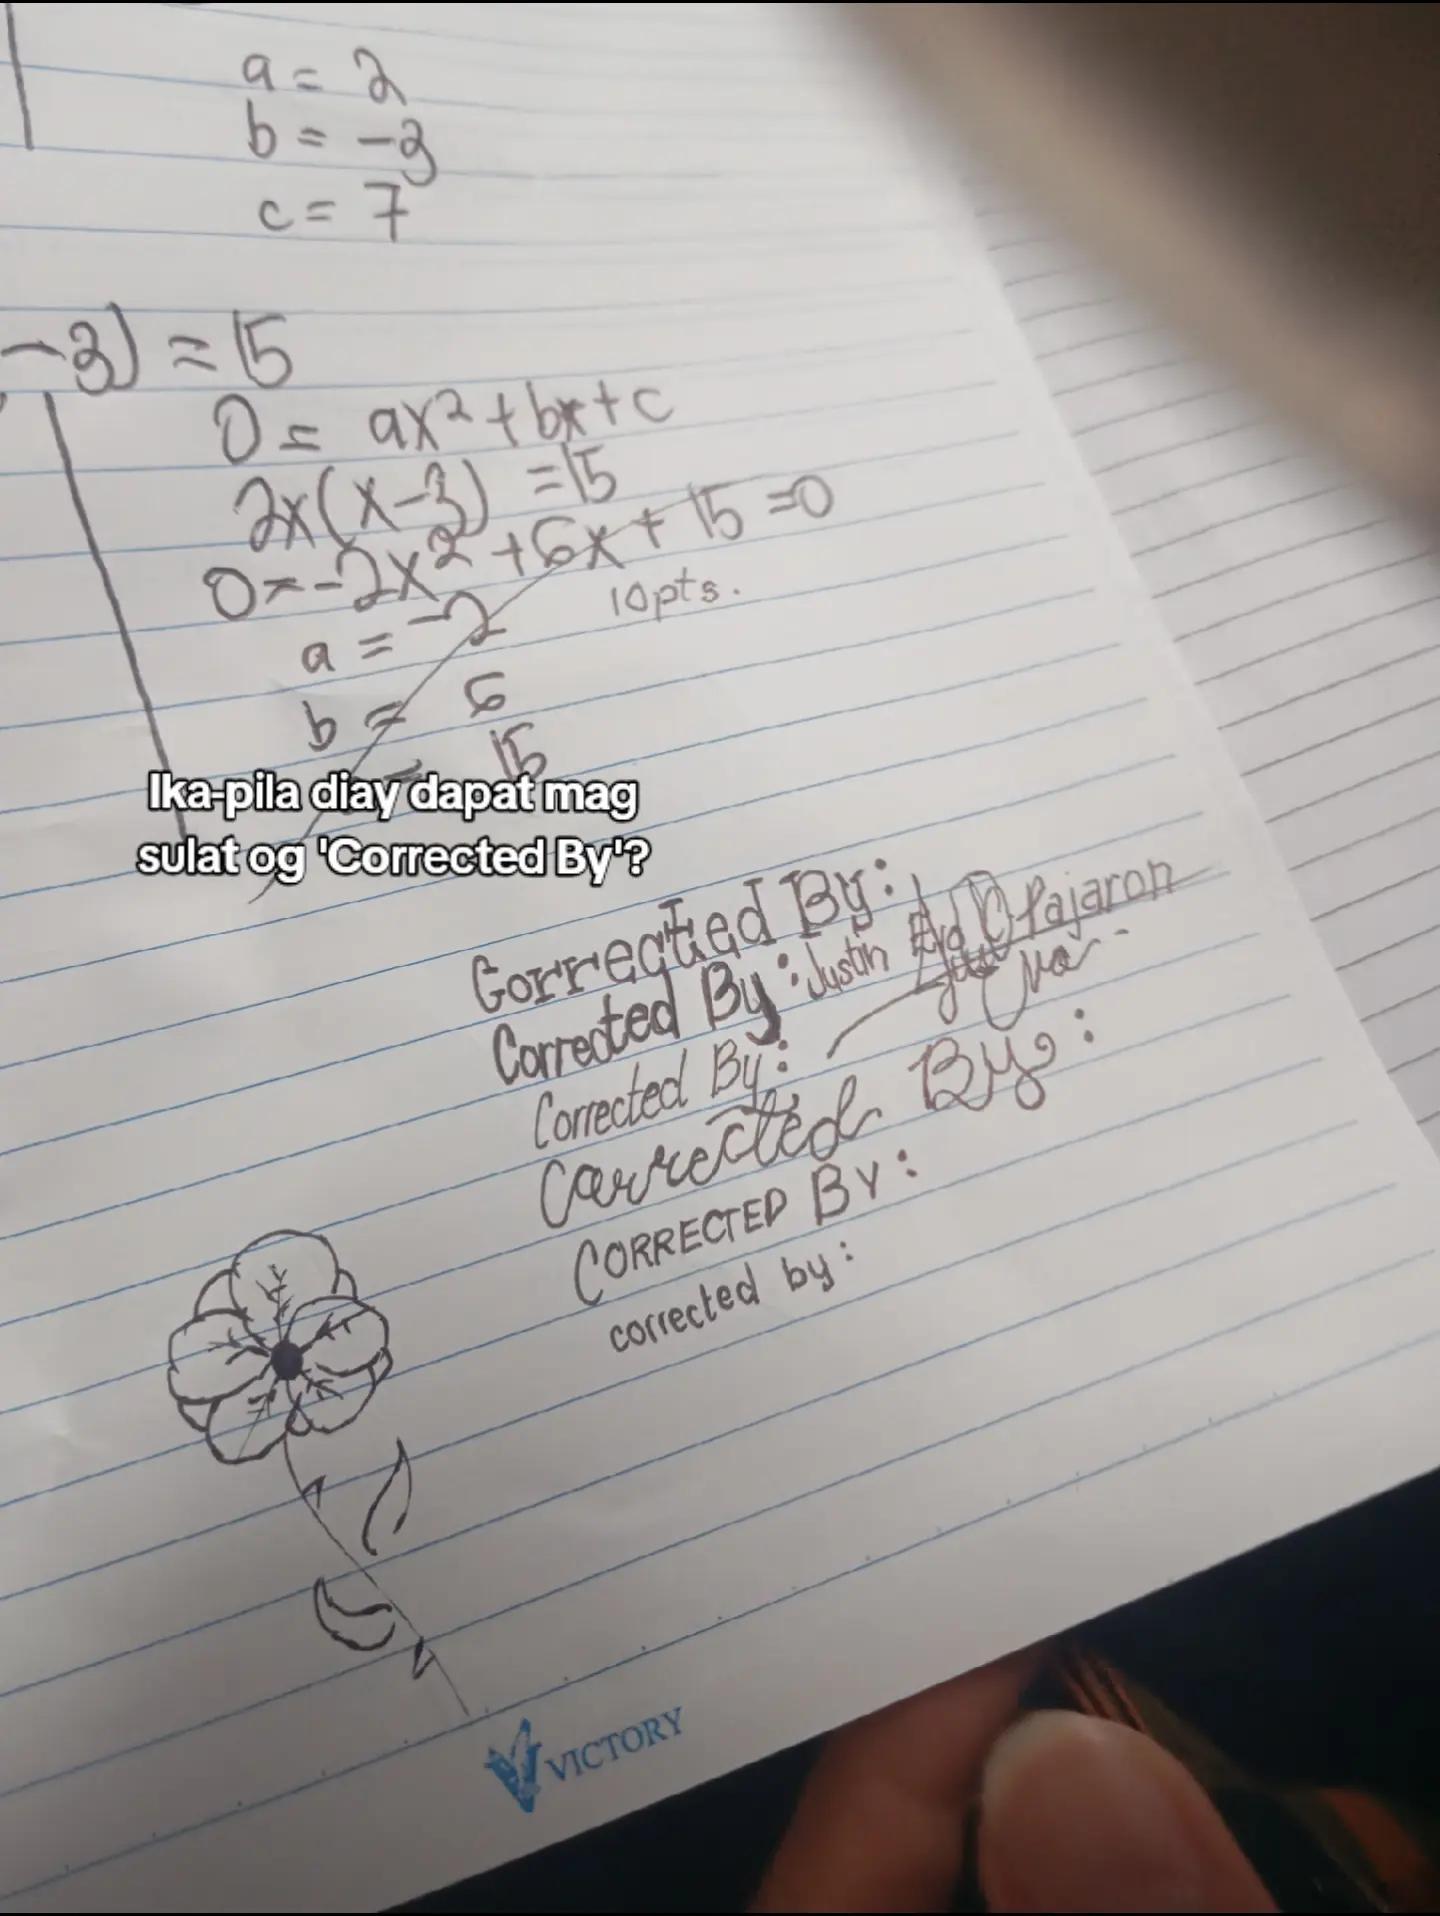 a = 2
b = -3
c = 7
-3) = 15
0 = ax² + bx + c
2x(x-3) = 15
0 = -2x² + 6x + 15 = 0
10pts.
a = -2
b = 6
= 15
Ika-pila diay dapat mag
sulat og 'Corrected By'?
Corrected By:
Corrected By: Justin Pajaron
Corrected By:
Corrected By:
CORRECTED BY:
corrected by:
VICTORY